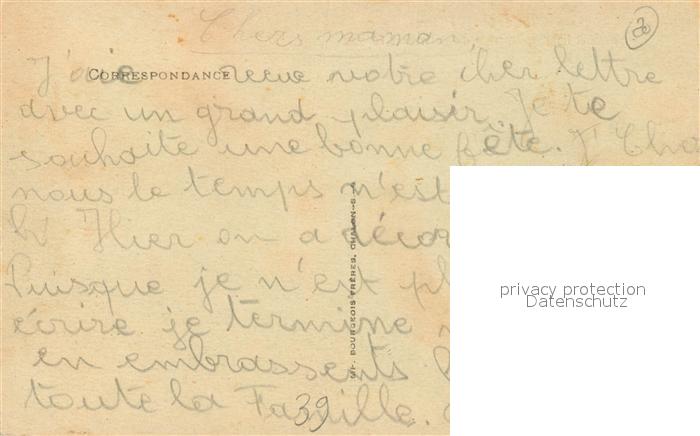 Chers maman,
CORRESPONDANCE
J'aie recue votre cher lettre
avec un grand plaisir. Je te
souhaite une bonne fête.
nous le temps n'est
Hier on a décor
Puisque je n'est pl
écrire je termine
en embrassents
toute la Famille.
39
IMP. BOURGEOIS FRÈRES, CHALON-S-S
privacy protection
Datenschutz